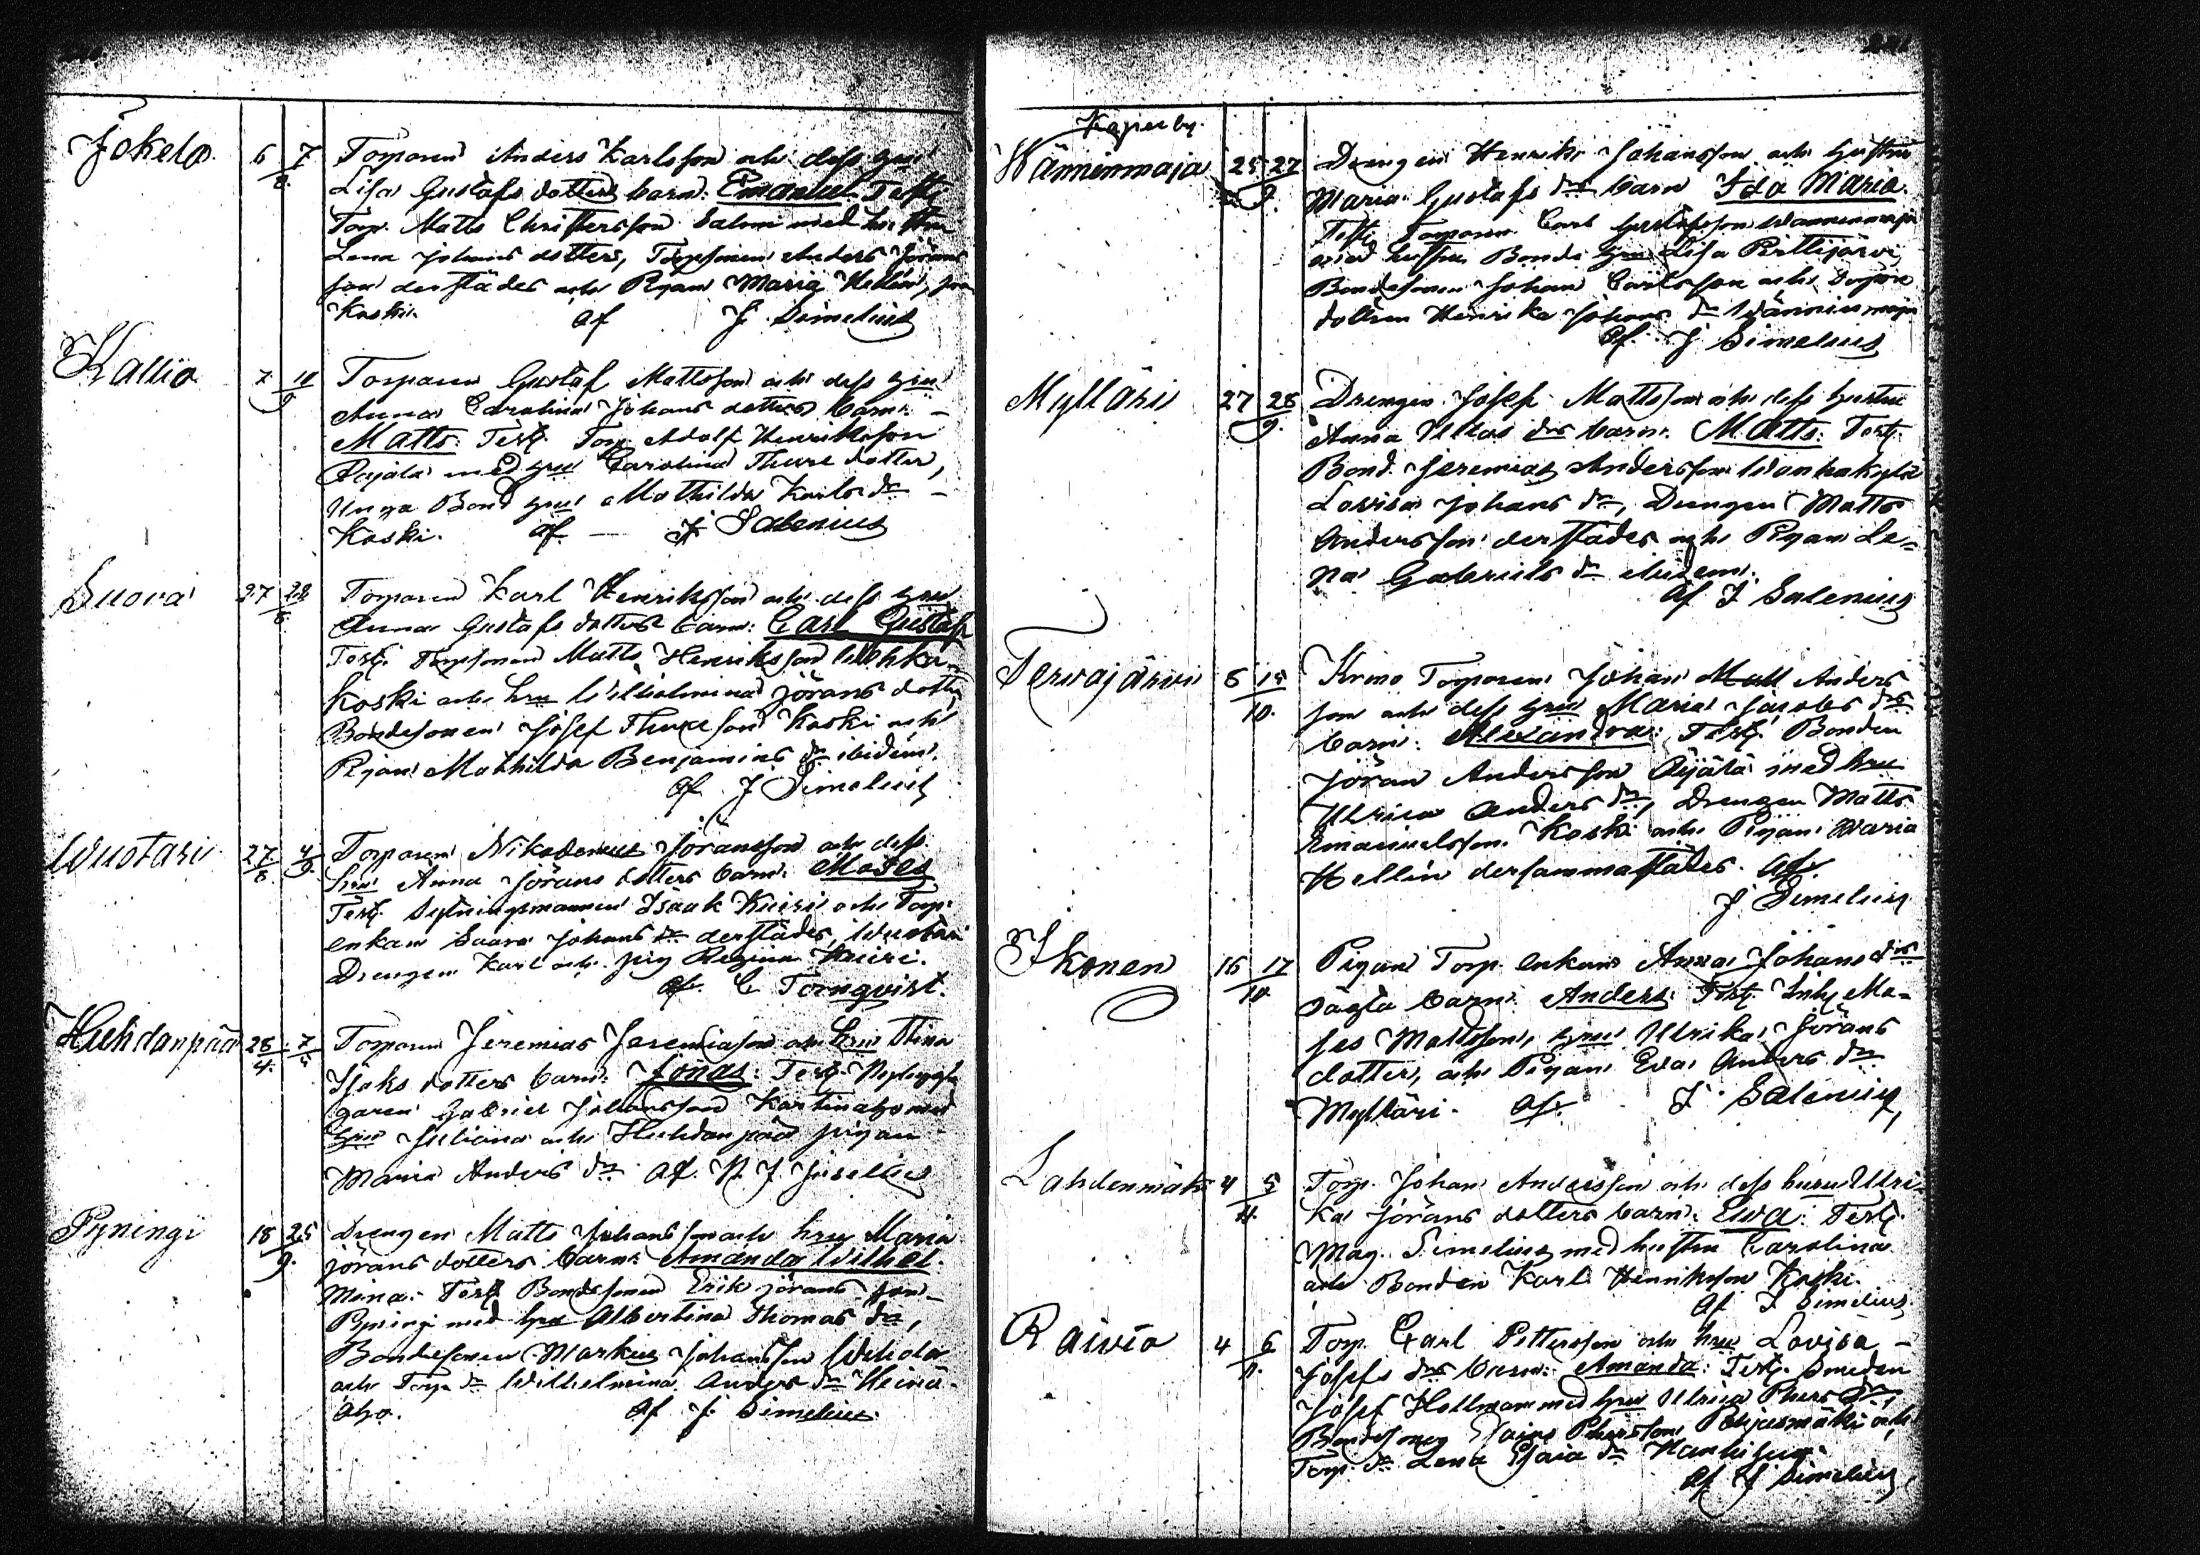 Jokela 6 7/8. Torparen Anders Karlsson och dess hru
Lisa Gustafs dotters barn: Emanuel Test:
Torp. Matts Christersson Salmi med hustru
Lena Johans dotter, Torpsonen Anders Jörans
son derstädes och Pigan Maria Hellin,
Koski. af J Simelius
Kallio 7 10/9 Torparen Gustaf Mattsson och dess hru
Anna Carolina Johans dotters barn: –
Matts: Test: Torp Adolf Henriksson
Äijälä med hru Carolina Thure dotter,
Unga Bond hru Mathilda Karls dr –
Koski. af – J Salenius
Suova 27 28/8. Torparen Karl Henriksson och dess hru
Anna Gustafs dotters barn: Carl Gustaf
Test: Torpsonen Matts Henriksson
koski och hru Wilhelmina Jörans dotter,
Bondesonen Josef Thuresson Koski och
Pigan Mathilda Benjamins dr ibidem.
af J Simelius
Wuotari 27/8. 4/9. Torparen Nikodemus Jöransson och dess
hru Anna Jörans dotters barn: Moses
Test: Sytningsmannen Isaak Kuiri och Torp.
enkan Saara Johans dr derstädes, Wuotari
Drengen Karl och pig Regina Kuiri.
af C Törnqvist.
Huhdanpää 28/4. 7/5 Torparen Jeremias Jeremiasson och hru Stina
Isaks dotters barn: Jonas: Test: Nybygga
garen Gabriel Johansson Kortinaho med
hru Juliana och Huhdanpää pigan
Maria Anders dr af N J
Pyningi 18 25/9. Drengen Matts Johansson och hru Maria
Jörans dotters barn: Amanda Wilhel-
mina: Test Bondesonen Erik Jörans son –
Pyningi med hru Albertina Thomas dr,
Bondesonen Markus Johansson
och Torp dr Wilhelmina Anders dr Heinä-
aho. af J. Simelius.
Käpirby.
Wänninmaja 25 27/9. Drengen Henrik Johansson och hustru
Maria Gustafs drs barn Ida Maria.
Test: Torparen Carl Gustafsson Wänninmaja
med hustru Bonde hru Lisa Pirttijärvi,
Bondesonen Johan Carlsson och Torpare
dottren Henrika Johans dr Wänninmaja
af J Simelius
Mylläri 27 28/9. Drengen Josef Mattsson och dess hustru
Anna drs barn: Matts: Test:
Bond. Jeremias Andersson Wanhakylä
Lovisa Johans dr, Drengen Matts
Andersson derstädes och Pigan Le-
na Gabriels dr ibidem.
af J Salenius
Terwajärwi 6 15/10. Krono Torparen Johan Matt Anders
son och dess hru Maria Jacobs drs
barn: Alexandra: Test: Bonden
Jöran Andersson Äijälä med hru
Ulrica Anders dr, Drengen Matts
Emanuelsson Koski och Pigan Maria
Hellin dersammastädes. af.
J Simelius
Ikonen 16 17/10. Pigan Torp. enkan Anna Johans drs
oägta barn: Anders: Test: Inh: Mo-
ses Mattsson, hru Ulrika Jörans
dotter, och Pigan Eva Anders dr
Mylläri. af. J Salenius,
Lahdenmäki 4 5/11. Torp. Johan Andersson och dess hustru Ulri-
ka Jörans dotters barn: Ewa: Test:
Mag. Simelius med hustru Carolina
och Bonden Karl Henriksson Koski.
af J Simelius.
Raivio 4 6/11. Torp. Carl Pettersson och hru Lovisa –
Josefs drs barn: Amanda: Test: Smeden
Josef Hellman med hru Ulrica Phers dr,
Bondesonen Esaias Phersson Pohjasmäki och
Torp. dr Lena Esaia dr
af J Simelius,